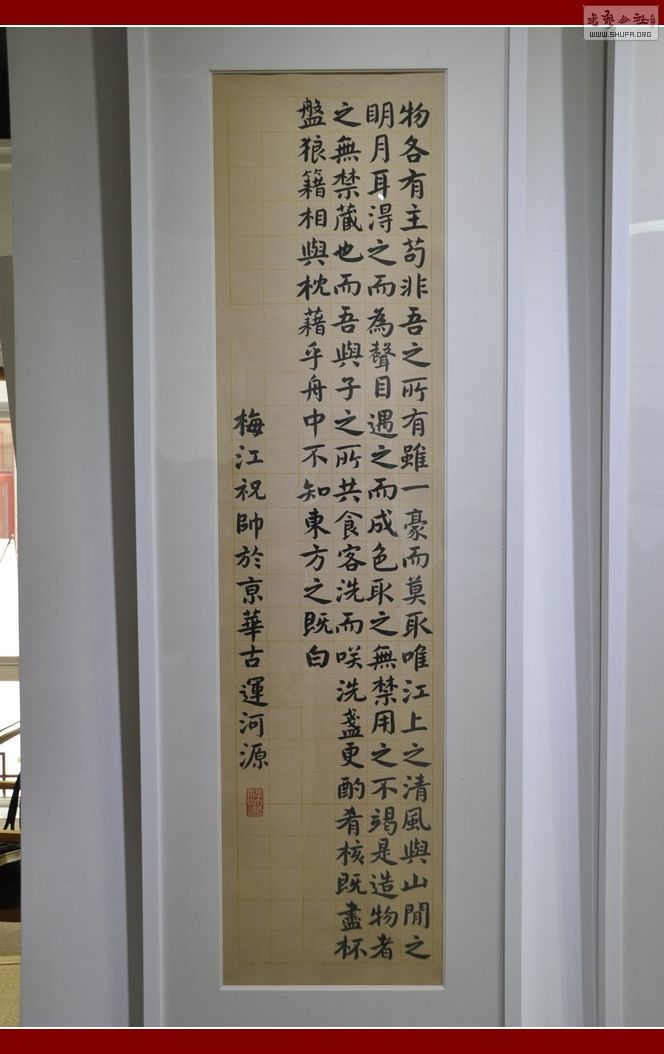 物各有主苟非吾之所有雖一豪而莫取唯江上之清風與山閒之
眀月耳淂之而為聲目遇之而成色取之無禁用之不竭是造物者
之無禁藏也而吾與子之所共食客洗而咲洗盞更酌肴核既盡杯
盤狼籍相與枕藉乎舟中不知東方之既白
梅江祝帥於亰華古運河源
WWW.SHUFA.ORG